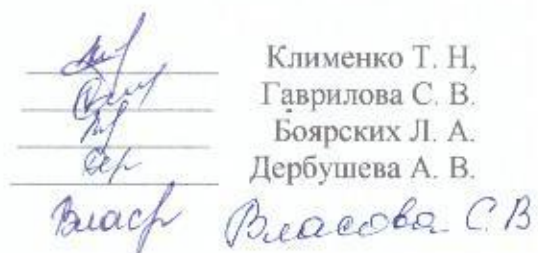 Клименко Т. Н,
Гаврилова С. В.
Боярских Л. А.
Дербушева А. В.
Власова С. В